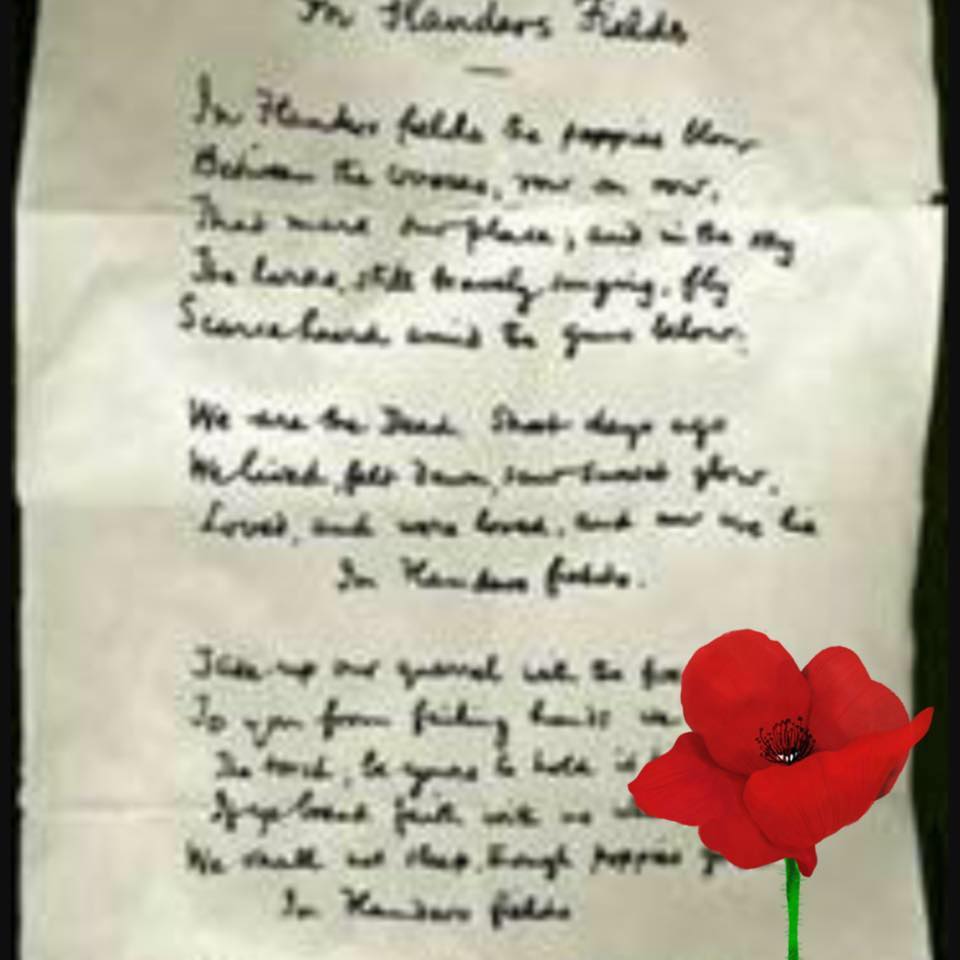 In Flanders Fields
In Flanders fields the poppies blow
Between the crosses, row on row,
That mark our place; and in the sky
The larks, still bravely singing, fly
Scarce heard amid the guns below.
We are the Dead. Short days ago
We lived, felt dawn, saw sunset glow,
Loved, and were loved, and now we lie
In Flanders fields.
Take up our quarrel with the
To you from failing hands we
The torch; be yours to hold it
If ye break faith with us
We shall not sleep, though poppies
In Flanders fields